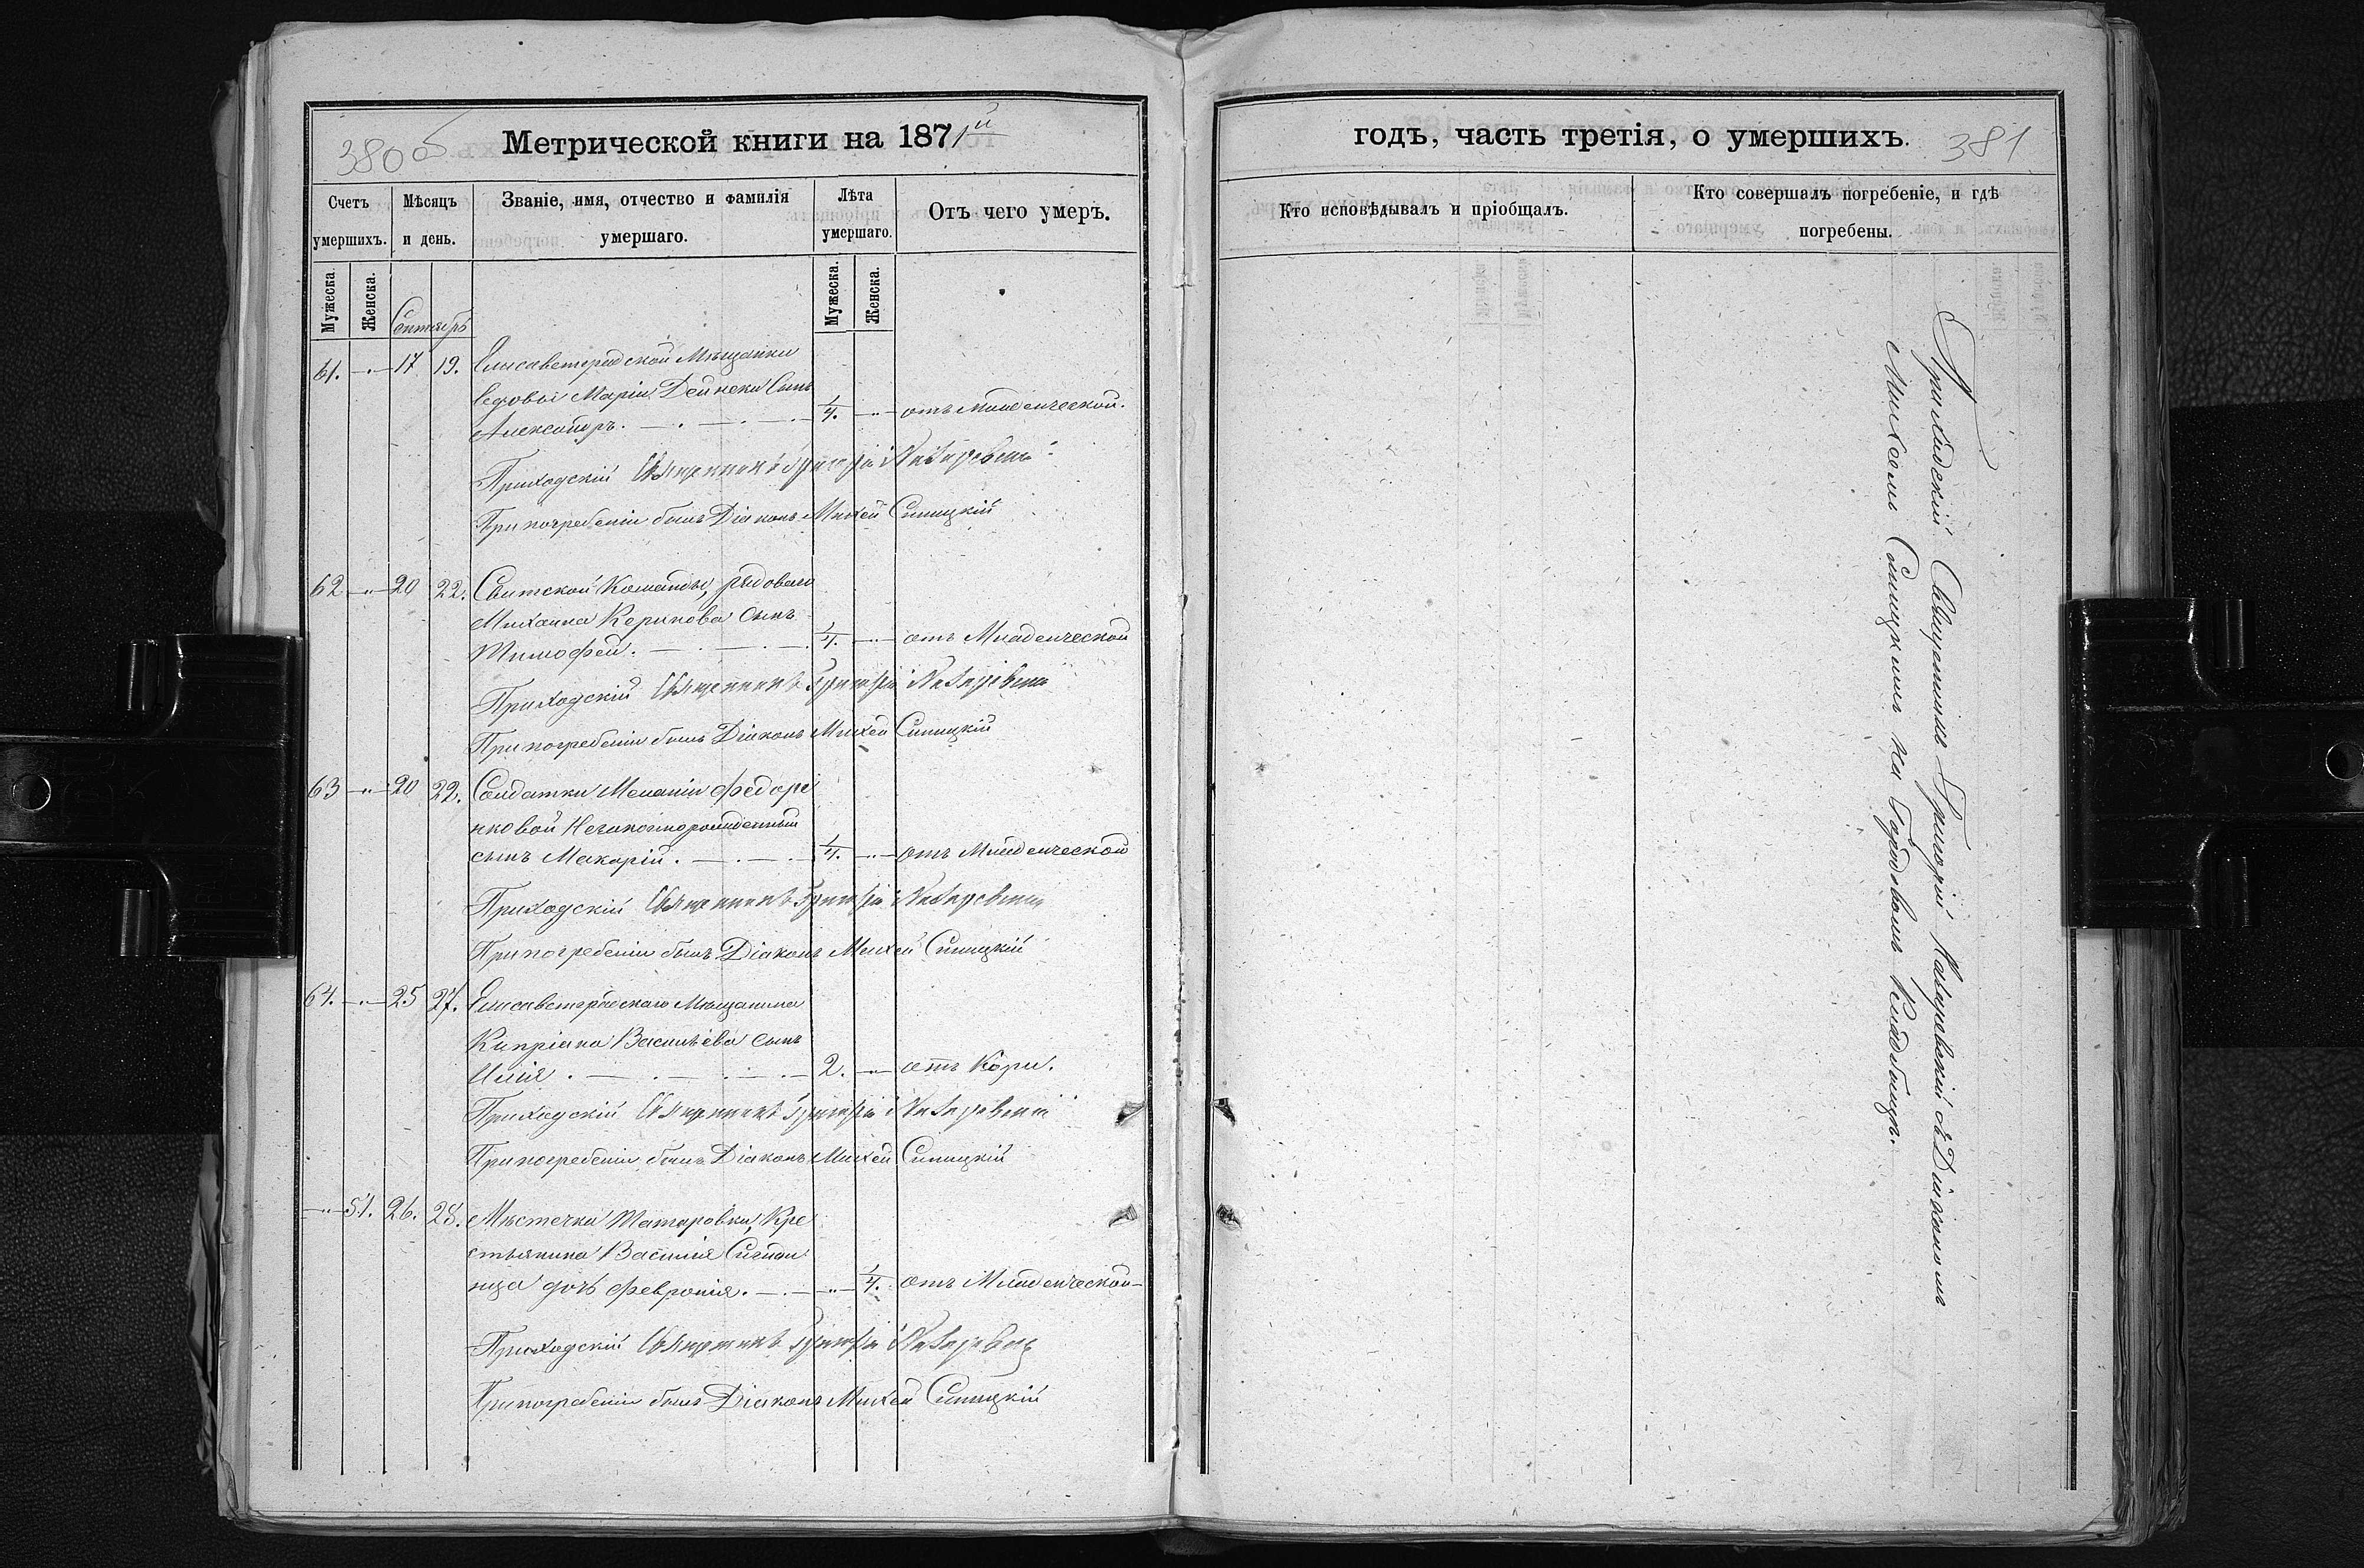 380 об
Метрической книги на 1871й
Счетъ умершихъ.
Мѣсяцъ и день.
Званіе, имя, отчество и фамилія умершаго.
Лѣта умершаго.
Отъ чего умеръ.
Мужеска.
Женска.
Мужеска.
Женска.
Сентябрь
61. —„— 17 19. Елисаветградской Мѣщанки
вдовы Маріи Дейнеки Сынъ
Александръ. — . — . — 1/4. —„— отъ младенческой.
Приходскій Священникъ Григорій Назаревскій
При погребеніи былъ Діаконъ Михей Синицкій
62 —„— 20 22. Свитской Команды, рядоваго
Михаила Керикова сынъ
Тимофей. — . — . — 1/4. —„— отъ Младенческой
Приходскій Священникъ Григорій Назаревскій
При погребеніи былъ Діаконъ Михей Синицкій
63 —„— 20 22. Солдатки Меланіи Федоре
нковой Незаконнорожденный
сынъ Макарій. — . — . — 1/4. —„— отъ Младенческой
Приходскій Священникъ Григорій Назаревскій
При погребеніи былъ Діаконъ Михей Синицкій
64. —„— 25 27. Елисаветградскаго Мѣщанина
Кипріана Васильева сынъ
Илія . — . — . — 2. —„— отъ Кори.
Приходскій Священникъ Григорій Назаревскій
При погребеніи былъ Діаконъ Михей Синицкій
—„— 51. 26. 28. Мѣстечка Татаровки, Кре
стьянина Василія
нца дочь Февронія. — . — —„— 1/4. отъ Младенческой —
Приходскій Священникъ Григорій Назаревскій
При погребеніи былъ Діаконъ Михей Синицкій
годъ, часть третія, о умершихъ.
381
Кто исповѣдывалъ и пріобщалъ.
Кто совершалъ погребеніе, и гдѣ погребены.
Приходскій Священникъ Григорій Назаревскій съ Діакономъ
Михеемъ Синицкимъ на Городовомъ Кладбищѣ.